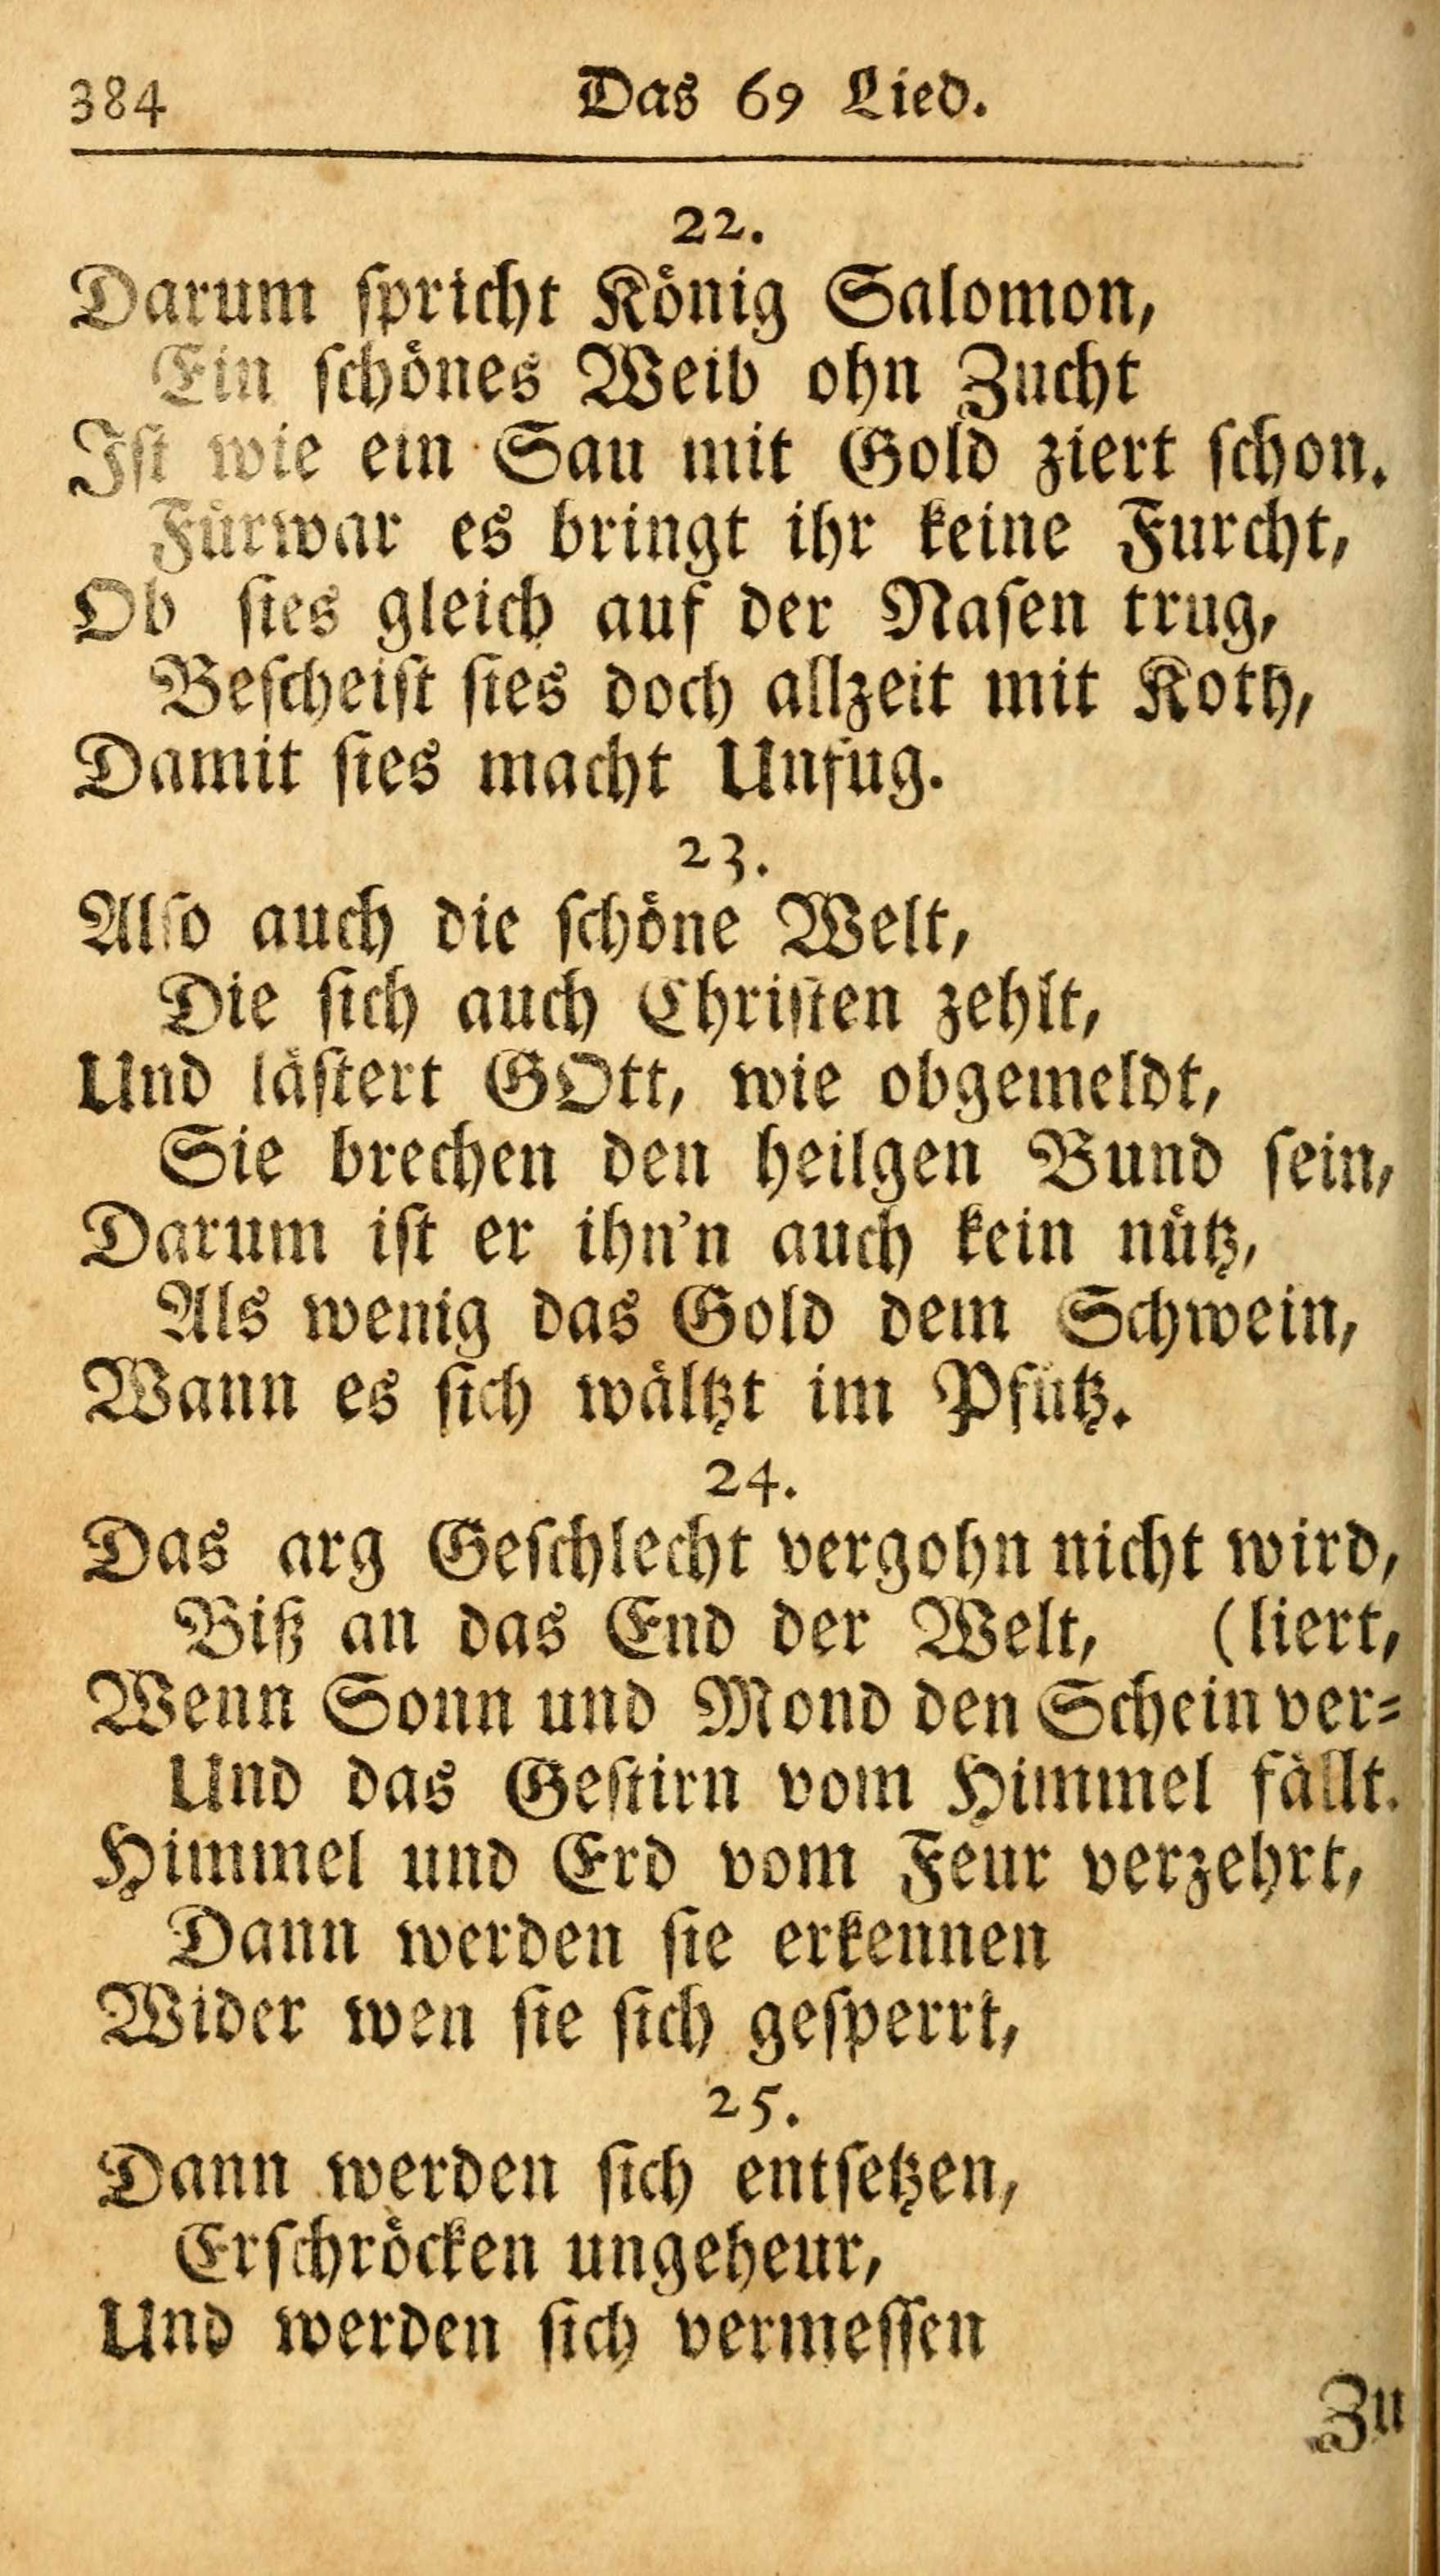 384 Das 69 Lied.
22.
Darum ſpricht König Salomon,
Ein ſchönes Weib ohn Zucht
Iſt wie ein Sau mit Gold ziert ſchon.
Fürwar es bringt ihr keine Furcht,
Ob ſies gleich auf der Naſen trug,
Beſcheiſt ſies doch allzeit mit Koth,
Damit ſies macht Unfug.
23.
Alſo auch die ſchöne Welt,
Die ſich auch Chriſten zehlt,
Und läſtert GOtt, wie obgemeldt,
Sie brechen den heilgen Bund ſein,
Darum iſt er ihn'n auch kein nütz,
Als wenig das Gold dem Schwein,
Wann es ſich wältzt im Pfütz.
24.
Das arg Geſchlecht vergohn nicht wird,
Biß an das End der Welt, (liert,
Wenn Sonn und Mond den Schein ver⸗
Und das Geſtirn vom Himmel fällt.
Himmel und Erd vom Feur verzehrt,
Dann werden ſie erkennen
Wider wen ſie ſich geſperrt,
25.
Dann werden ſich entſetzen,
Erſchröcken ungeheur,
Und werden ſich vermeſſen
Zu